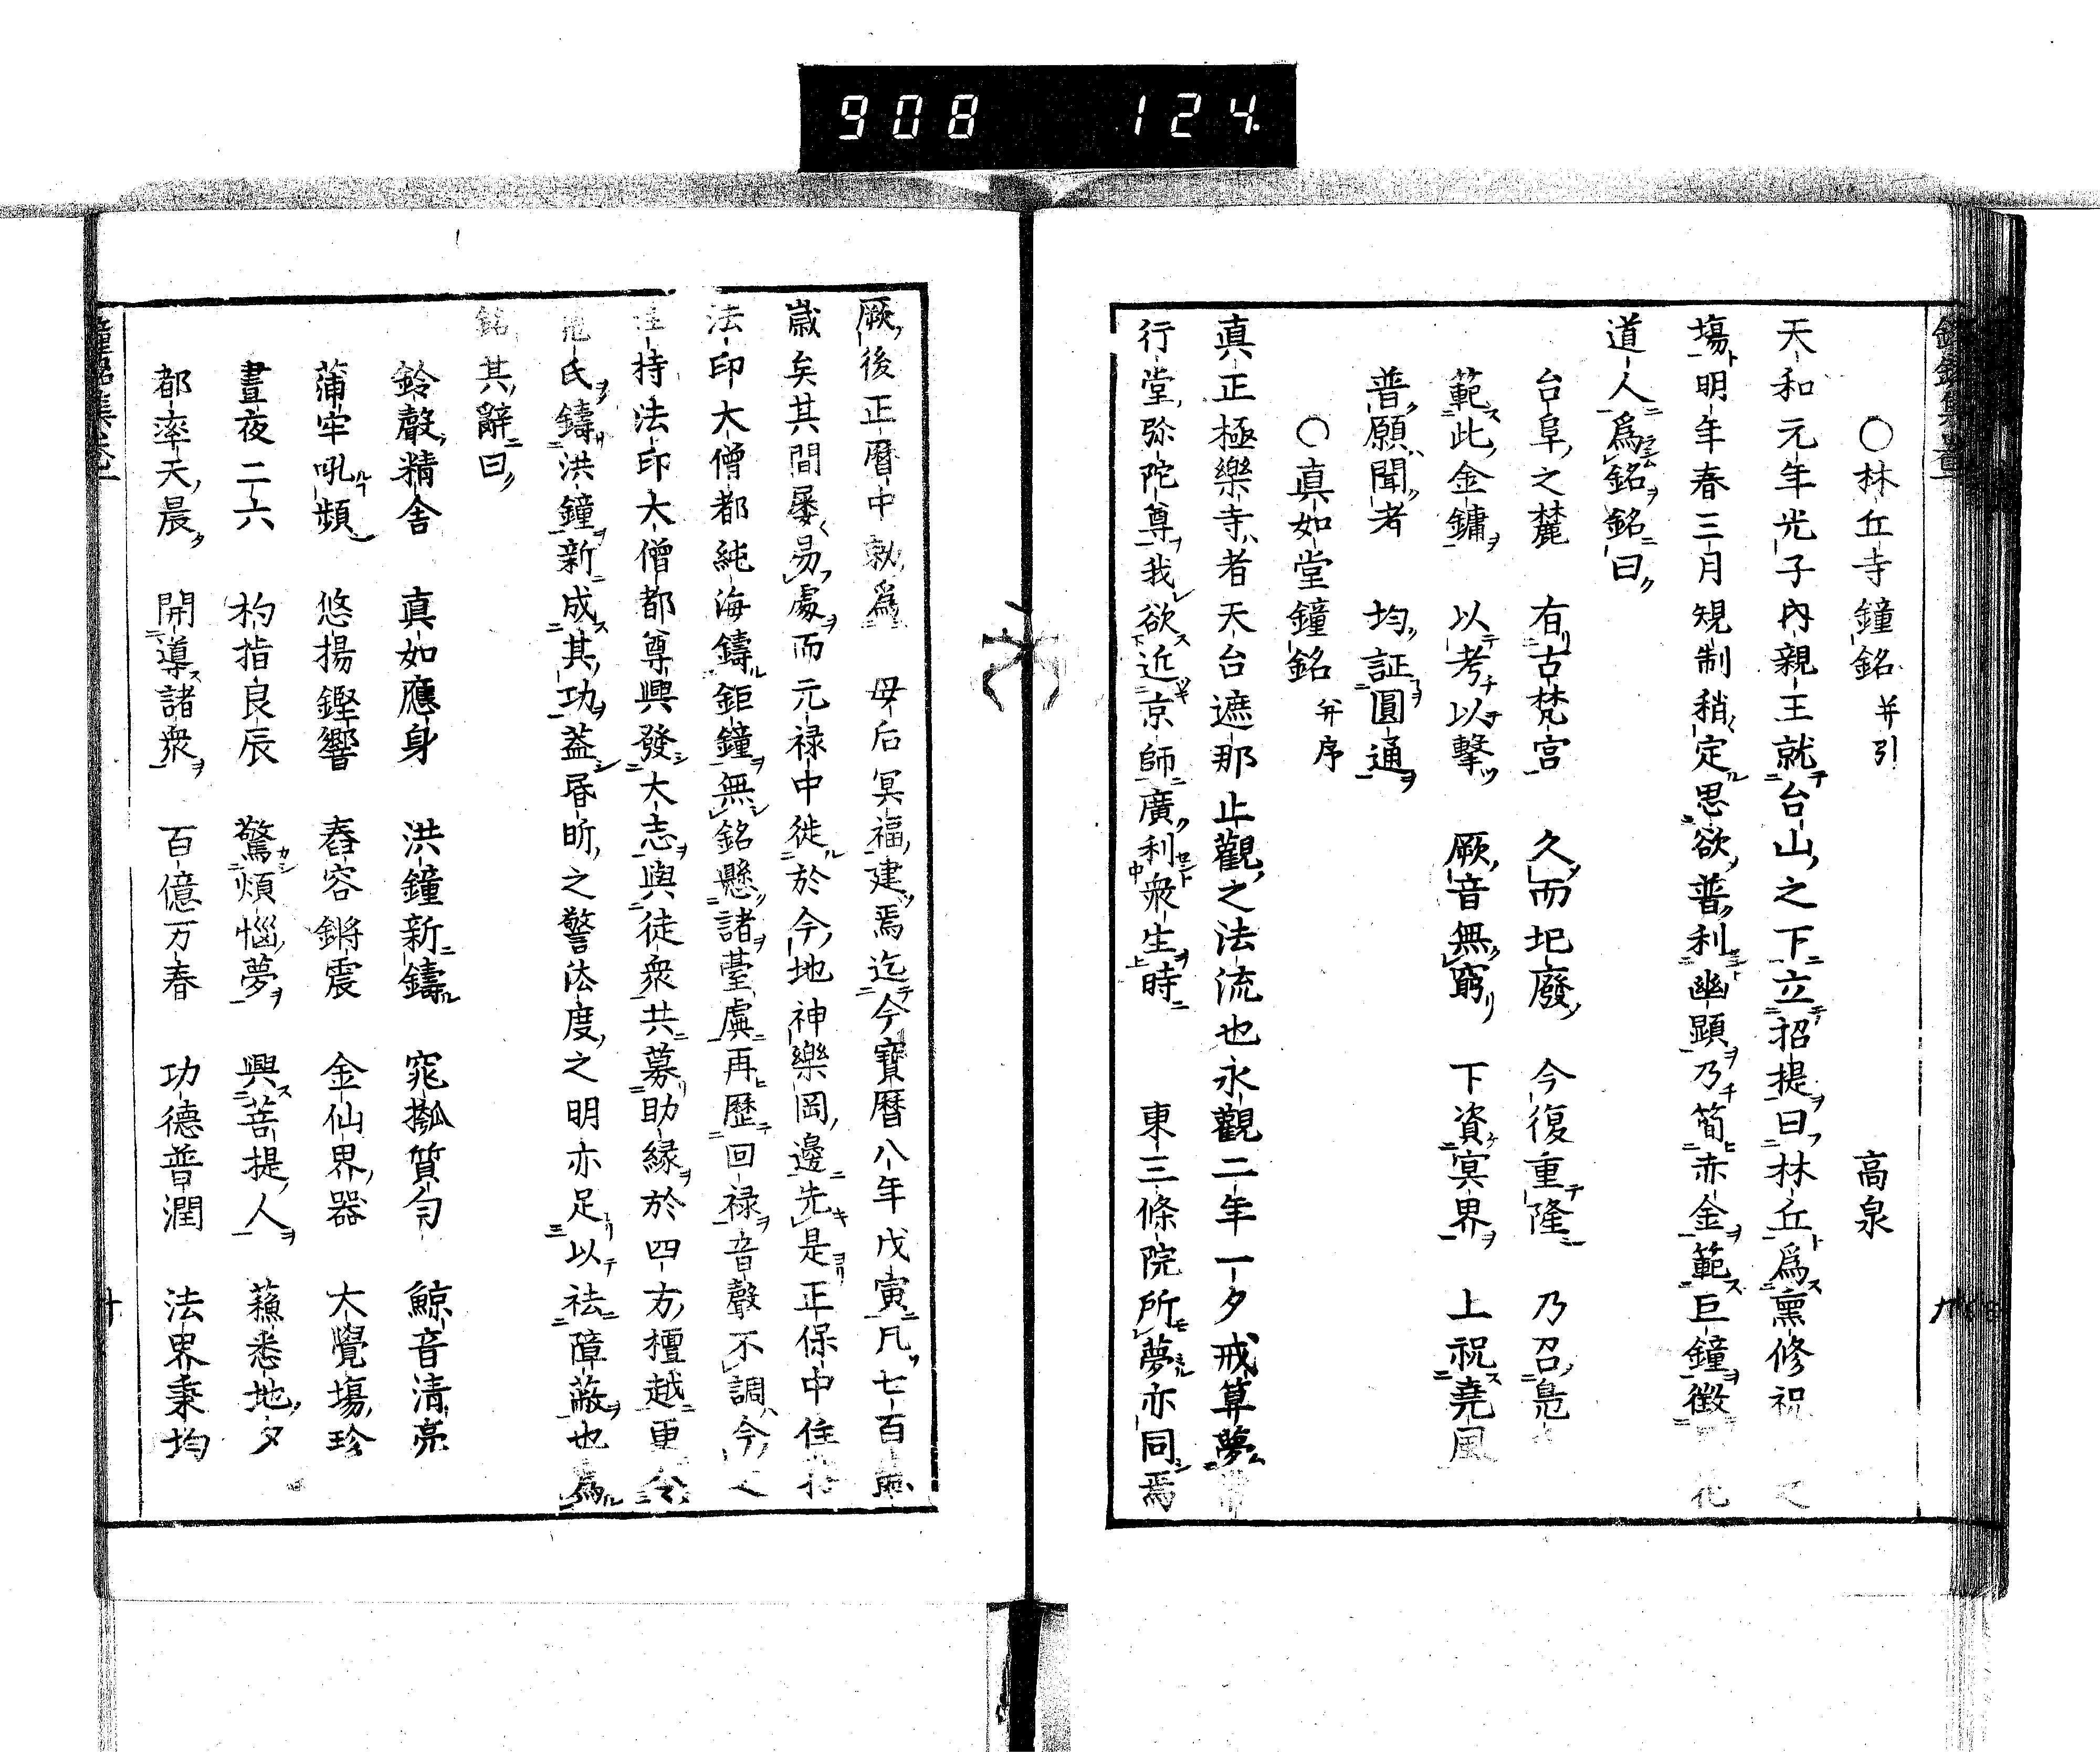 908 124
○林丘寺鐘銘 并引 高泉
天和元年光子內親王就台山之下立招提曰林丘為熏修祝之
場明年春三月規制稍定思欲普利幽顕乃簡赤金範巨鐘徴
道人為銘銘曰
台阜之麓 有古梵宮 久而圯廢 今復重隆 乃召鳧
範此金鏞 以考以擊 厥音無窮 下資冥界 上祝堯風
普願聞者 均証圓通
○真如堂鐘銘 并序
真正極樂寺者天台遮那止觀之法流也永觀二年一夕戒算夢
行堂弥陀尊我欲近京師廣利衆生時 東三條院所夢亦同焉
厥後正曆中勅為 母后冥福建焉迄今寶曆八年戊寅凡七百
歳矣其間屡易處而元禄中徙於今地神樂岡邊先是正保中住
法印大僧都純海鑄鉅鐘無銘懸諸臺虡再歷回禄音聲不調今之
持法印大僧都尊興發大志與徒衆共募助緣於四方檀越更令
氏鑄洪鐘新成其功益昏昕之警法度之明亦足以祛障蔽也為
銘其辭曰
鈴聲精舍 真如應身 洪鐘新鑄 窕槬質勻 鯨音清亮
蒲牢吼頻 悠揚鏗響 舂容鏘震 金仙界器 大覺場珍
晝夜二六 杓指良辰 驚煩惱夢 興菩提人 蘓悉地夕
都率天晨 開導諸衆 百億万春 功德普潤 法界秉均
鐘銘集卷一